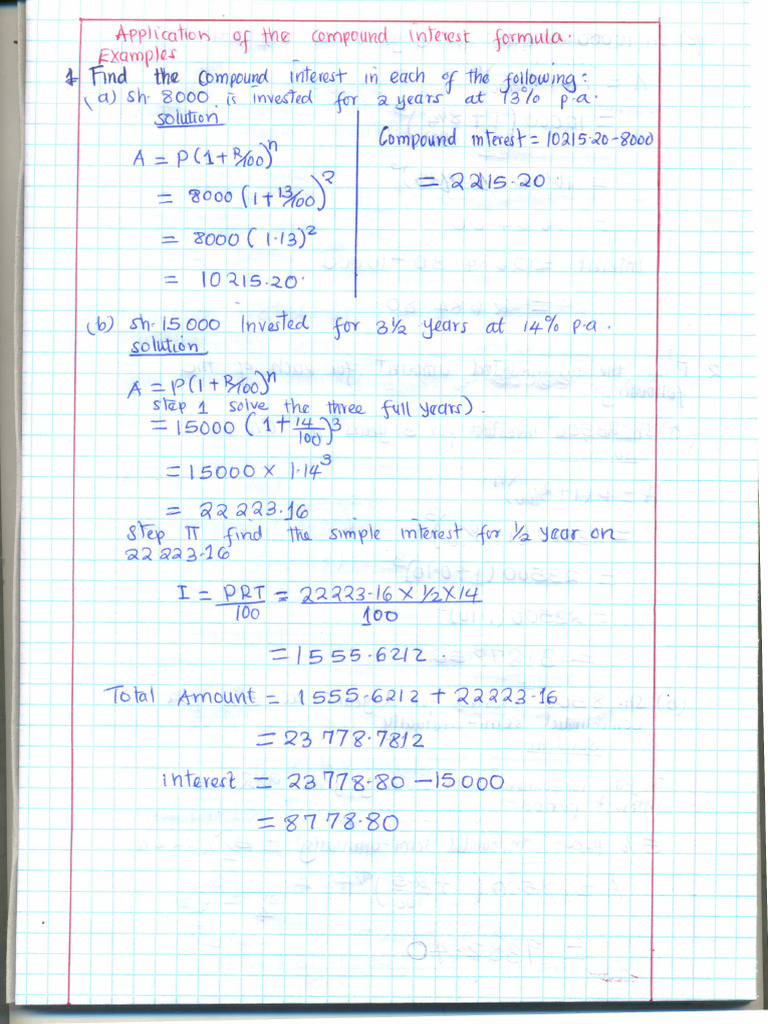 Application of the compound interest formula.
Examples
1 Find the compound interest in each of the following:
(a) sh. 8000 is invested for 2 years at 13% p.a.
solution
A = P(1+R/100)^n
= 8000 (1+13/100)^2
= 8000 (1.13)^2
= 10215.20.
Compound interest = 10215.20-8000
= 2215.20.
(b) sh.15000 Invested for 3½ years at 14% p.a.
solution
A = P(1+R/100)^n
step 1 solve the three full years).
= 15000 (1+14/100)^3
= 15000 × 1.14^3
= 22223.16
step II find the simple interest for ½ year on
22223.16
I = PRT/100 = 22223.16 × ½ × 14/100
= 1555.6212.
Total Amount = 1555.6212 + 22223.16
= 23778.7812
interest = 23778.80 - 15000
= 8778.80